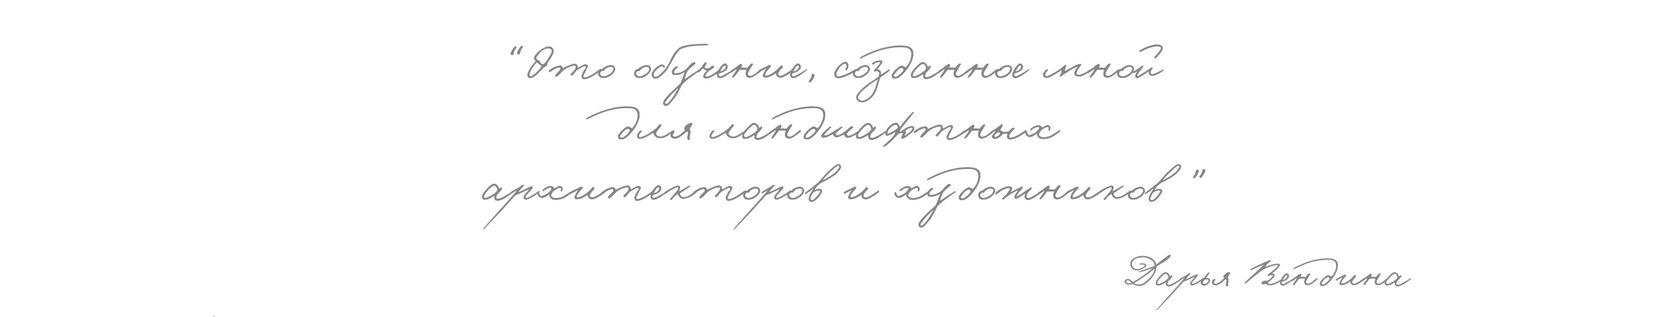 “Это обучение, созданное мной
для ландшафтных
архитекторов и художников”
Дарья Вендина